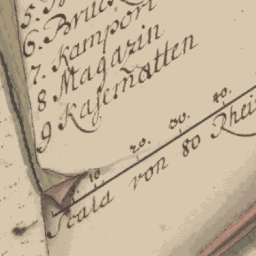 5.
6. Bruck
7. Kamport
8 Magazin
9 Kasematten
10. 20. 30. 40.
Scala von 80 Rhei